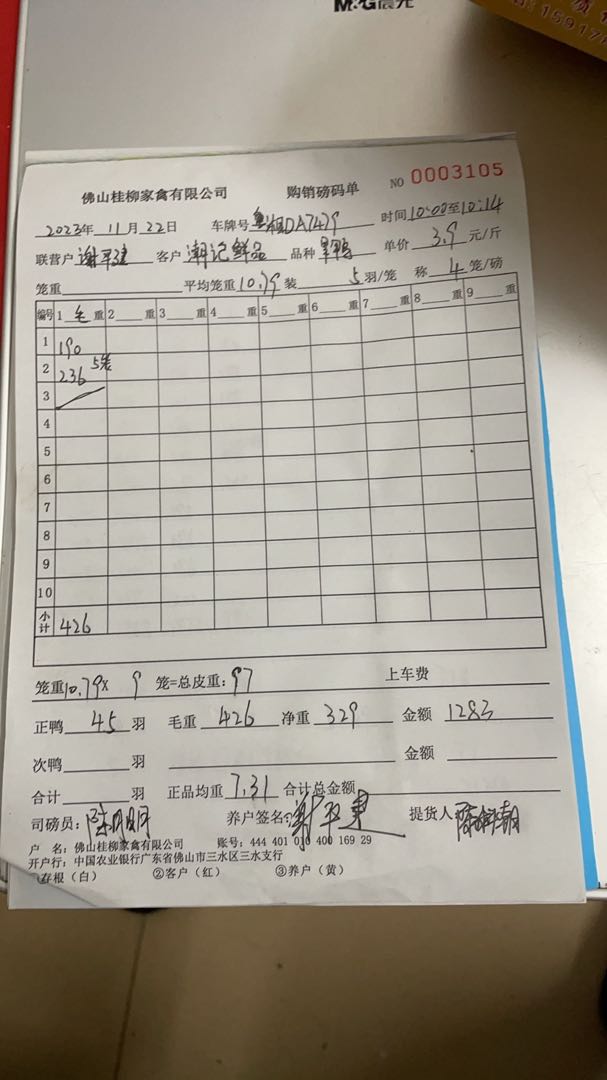 M&G晨光
佛山桂柳家禽有限公司 购销磅码单 NO 0003105
2023年 11月22日 车牌号 DA7479 时间10:00至10:14
联营户 谢平建 客户 潮记鲜品 品种 单价 3.9 元/斤
笼重 平均笼重 10.79 装 5 羽/笼 称 4 笼/磅
编号 1 毛 重 2 重 3 重 4 重 5 重 6 重 7 重 8 重 9 重
1 190
2 236 5笼
3
4
5
6
7
8
9
10
小计 426
笼重10.79× 9 笼=总皮重: 97 上车费
正鸭 45 羽 毛重 426 净重 329 金额 1283
次鸭 羽 金额
合计 羽 正品均重 7.31 合计总金额
司磅员: 养户签名: 提货人
户 名: 佛山桂柳家禽有限公司 账号: 444 401 010 400 169 29
开户行: 中国农业银行广东省佛山市三水区三水支行
①存根（白） ②客户（红） ③养户（黄）